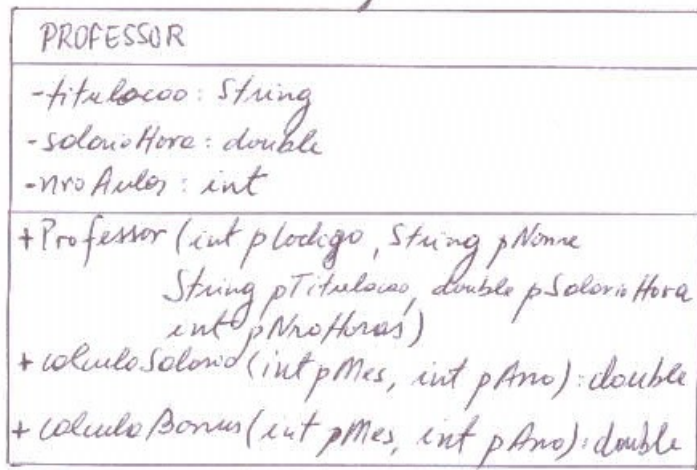 PROFESSOR
-titulacao: String
-salarioHora: double
-nroAulas: int
+Professor(int pCodigo, String pNome
String pTitulacao, double pSalarioHora
int pNroHoras)
+calculoSalario(int pMes, int pAno): double
+calculoBonus(int pMes, int pAno): double